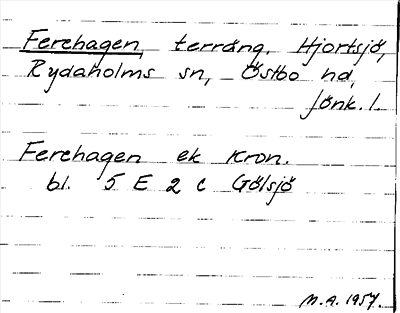 Ferehagen, terräng, Hjortsjö,
Rydaholms sn, Östbo hd,
Jönk. l.
Ferehagen ek kron.
bl. 5 E 2 c Gölsjö
M.A. 1957.